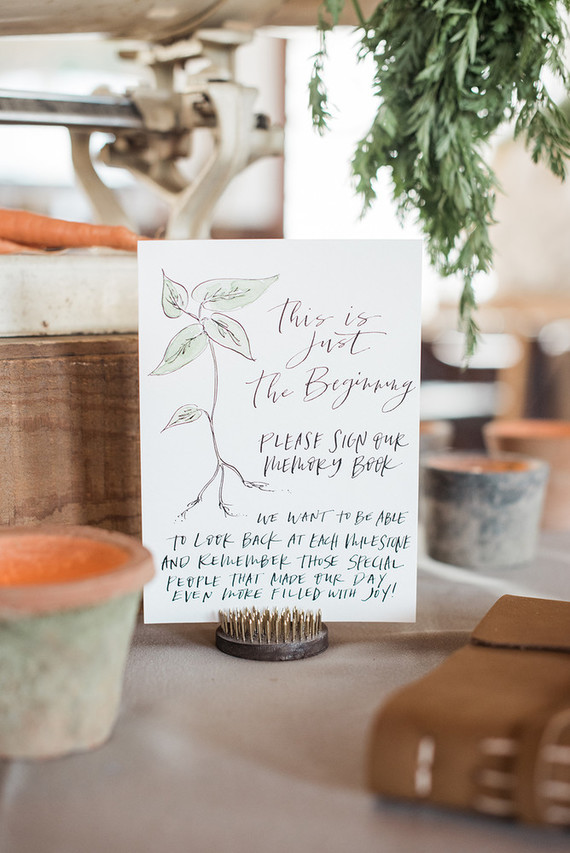 This is
Just
the Beginning
PLEASE SIGN OUR
MEMORY BOOK
WE WANT TO BE ABLE
TO LOOK BACK AT EACH MILESTONE
AND REMEMBER THOSE SPECIAL
PEOPLE THAT MADE OUR DAY
EVEN MORE FILLED WITH JOY!